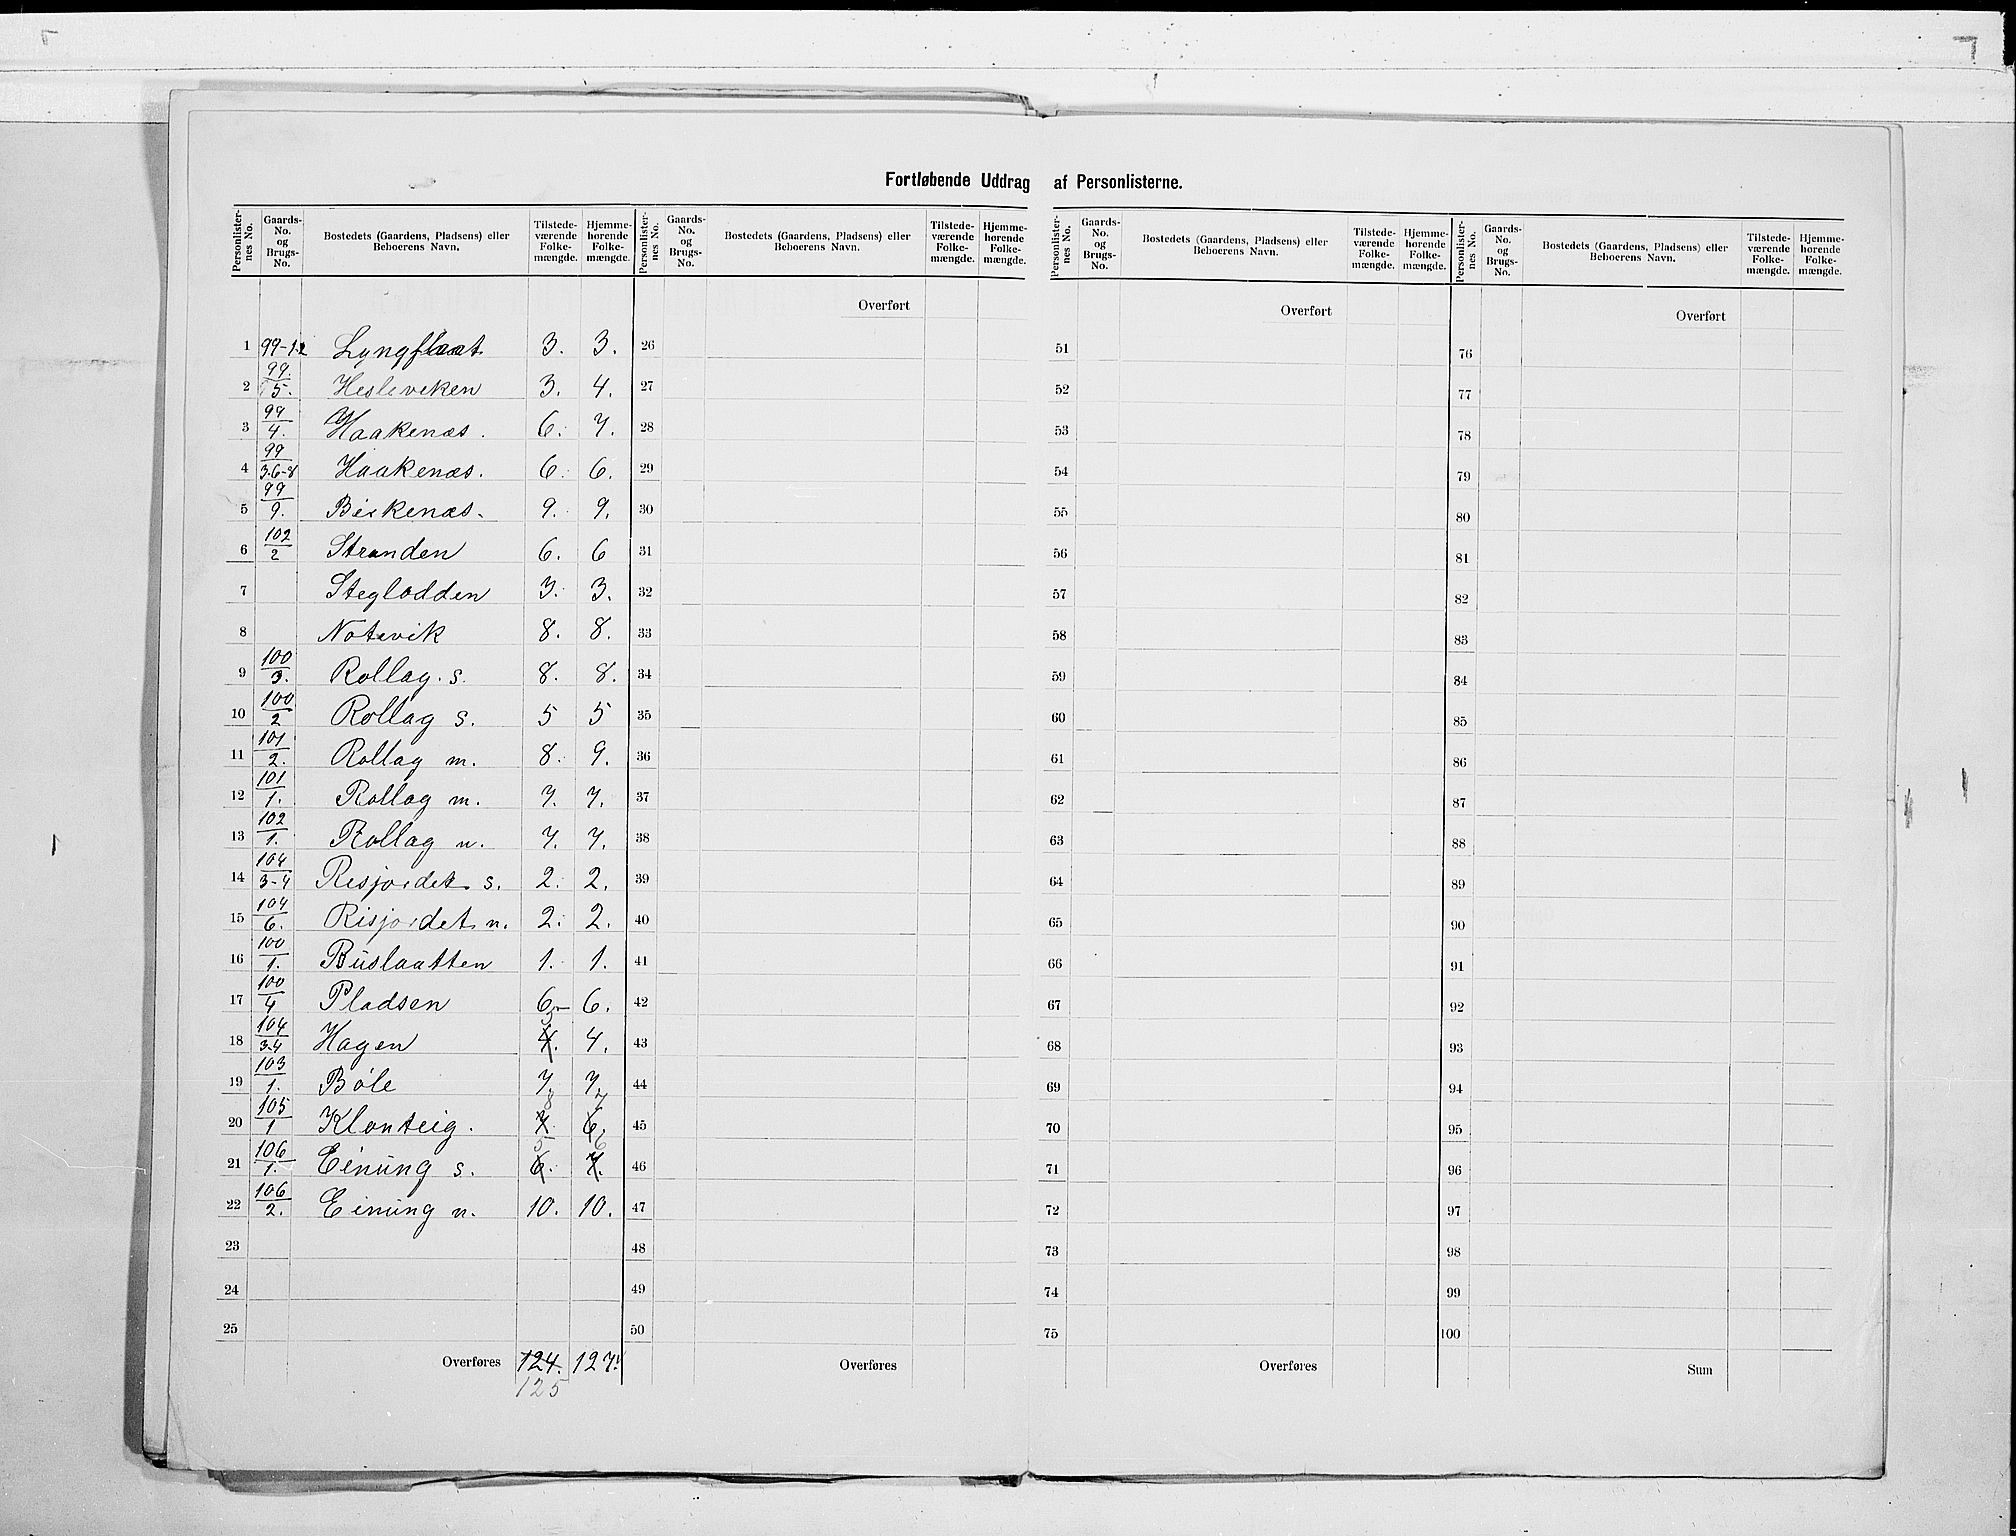 Fortløbende Uddrag af Personlisterne.
Personlister-nes No. | Gaards-No. og Brugs-No. | Bostedets (Gaardens, Pladsens) eller Beboerens Navn. | Tilstede-værende Folke-mængde. | Hjemme-hørende Folke-mængde.
Personlister-nes No. | Gaards-No. og Brugs-No. | Bostedets (Gaardens, Pladsens) eller Beboerens Navn. | Tilstede-værende Folke-mængde. | Hjemme-hørende Folke-mængde.
Personlister-nes No. | Gaards-No. og Brugs-No. | Bostedets (Gaardens, Pladsens) eller Beboerens Navn. | Tilstede-værende Folke-mængde. | Hjemme-hørende Folke-mængde.
Personlister-nes No. | Gaards-No. og Brugs-No. | Bostedets (Gaardens, Pladsens) eller Beboerens Navn. | Tilstede-værende Folke-mængde. | Hjemme-hørende Folke-mængde.
Overført Overført Overført
1 99-1.2 Lyngflaat 3. 3. 26 51 76
2 99/5. Hesleviken 3. 4. 27 52 77
3 99/4. Haakenæs. 6. 7. 28 53 78
4 99/3.6-8 Haakenæs. 6. 6. 29 54 79
5 99/9. Birkenæs. 9. 9. 30 55 80
6 102/2 Stranden 6. 6 31 56 81
7 Steglodden 3. 3. 32 57 82
8 Notevik 8. 8. 33 58 83
9 100/3. Rollag. s. 8. 8. 34 59 84
10 100/2 Rollag s. 5 5 35 60 85
11 101/2. Rollag m. 8. 9. 36 61 86
12 101/1. Rollag m. 7. 7. 37 62 87
13 102/1. Rollag n. 7. 7. 38 63 88
14 104/3-4 Risjordet s. 2. 2. 39 64 89
15 104/6. Risjordet n. 2. 2. 40 65 90
16 100/1. Buslaatten 1. 1. 41 66 91
17 100/4 Pladsen 6 6. 42 67 92
18 104/3-4 Hagen 4. 4. 43 68 93
19 103/1. Bøle 7 7 44 69 94
20 105/1 Klonteig. 7. 8 6. 7 45 70 95
21 106/1. Einung s. 6. 5 7. 6 46 71 96
22 106/2. Einung n. 10. 10. 47 72 97
23 48 73 98
24 49 74 99
25 50 75 100
Overføres 124. 127. Overføres Overføres Sum
125